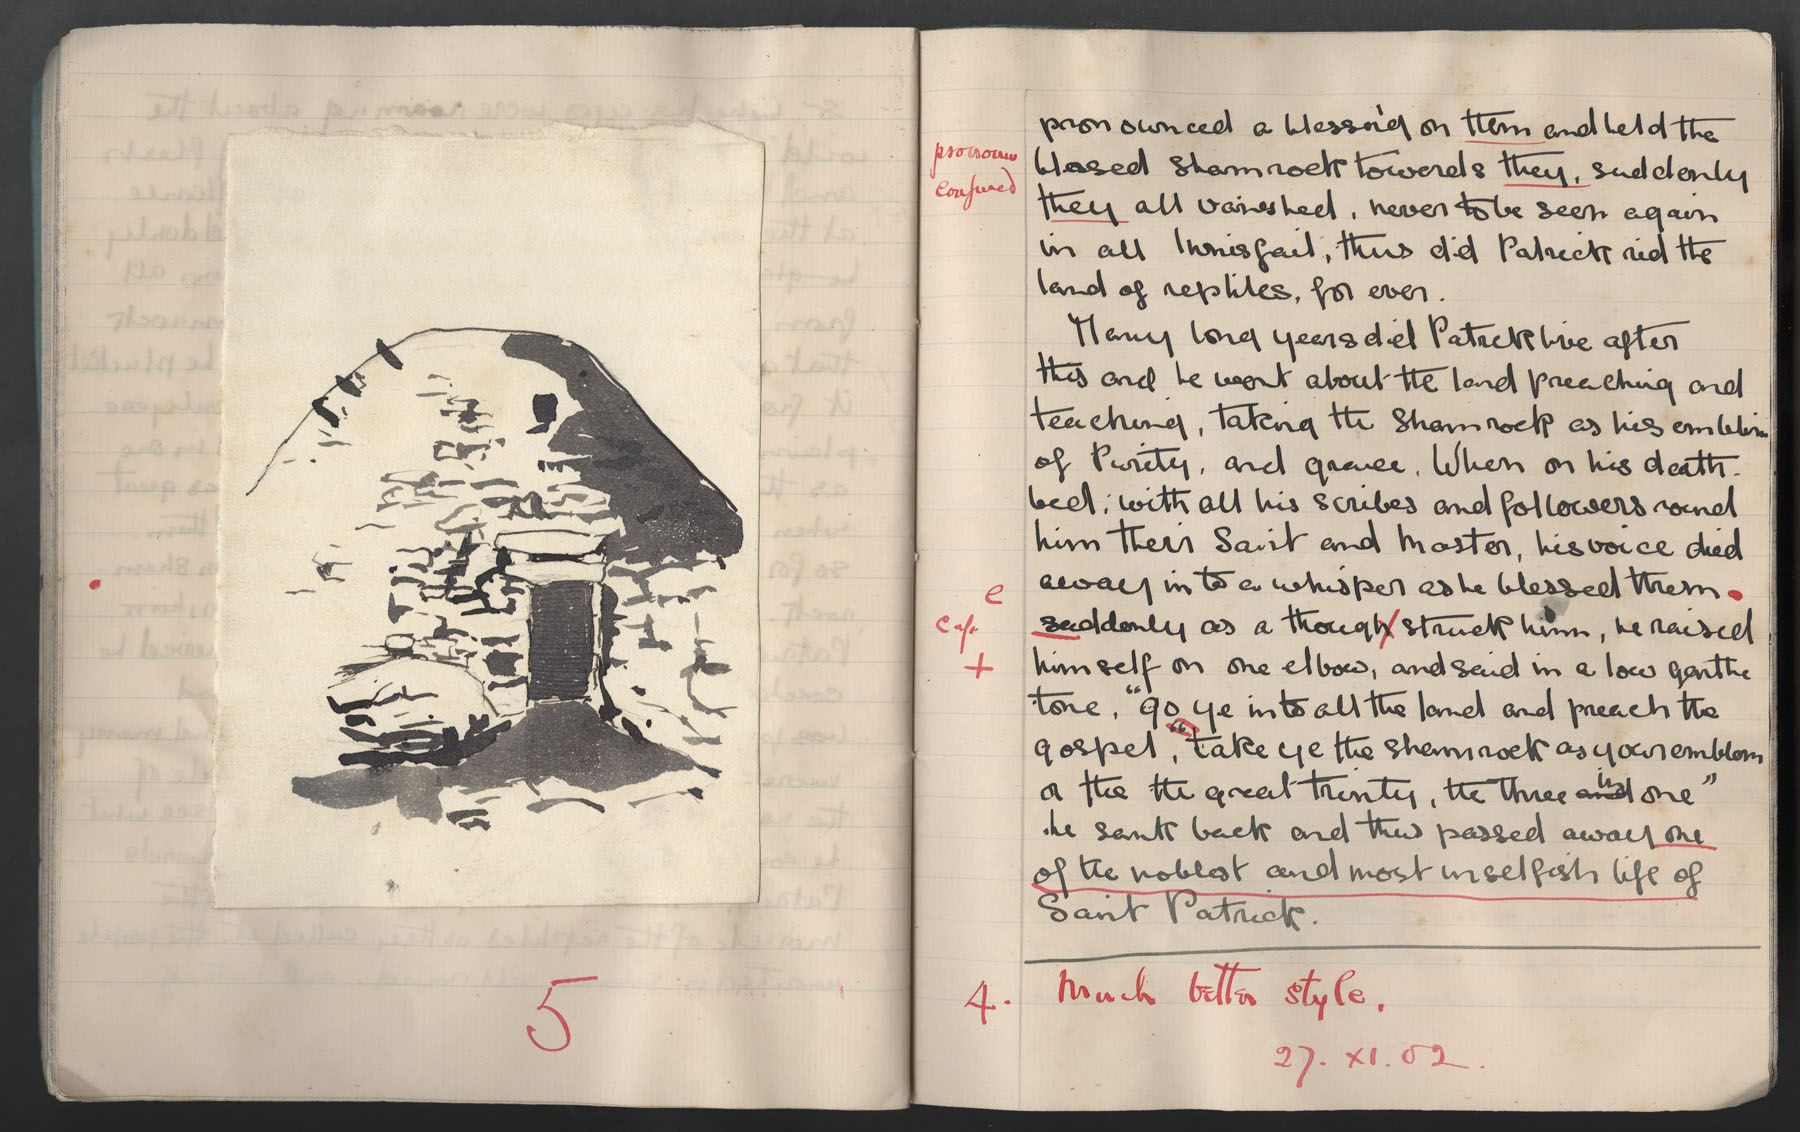 5
pronounced a blessing on them and held the
blessed Shamrock towards they, suddenly
they all vanished, never to be seen again
in all Innisfail, thus did Patrick rid the
land of reptiles, for ever.
Many long years did Patrick live after
this and he went about the land preaching and
teaching, taking the Shamrock as his emblem
of Purity, and grace. When on his death-
bed, with all his scribes and followers round
him their Saint and Master, his voice died
away into a whisper as he blessed them.
suddenly as a though struck him, he raised
himself on one elbow, and said in a low gentle
tone, "go ye into all the land and preach the
gospel, "take ye the Shamrock as your emblem
of the the great trinity, the three and in one"
he sank back and thus passed away one
of the noblest and most unselfish life of
Saint Patrick.
pronouns
confused
e
cap.
+
4. Much better style.
27. XI. 02.